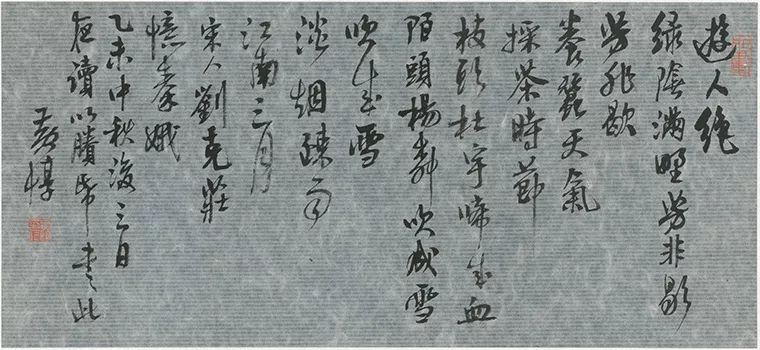 遊人絕
綠陰滿野芳菲歇
芳菲歇
養蠶天氣
採茶時節
枝頭杜宇啼成血
陌頭楊柳吹成雪
吹成雪
淡烟疎雨
江南三月
宋人劉克莊
憶秦娥
乙未中秋後三日
夜讀以賸紙書此
黃惇